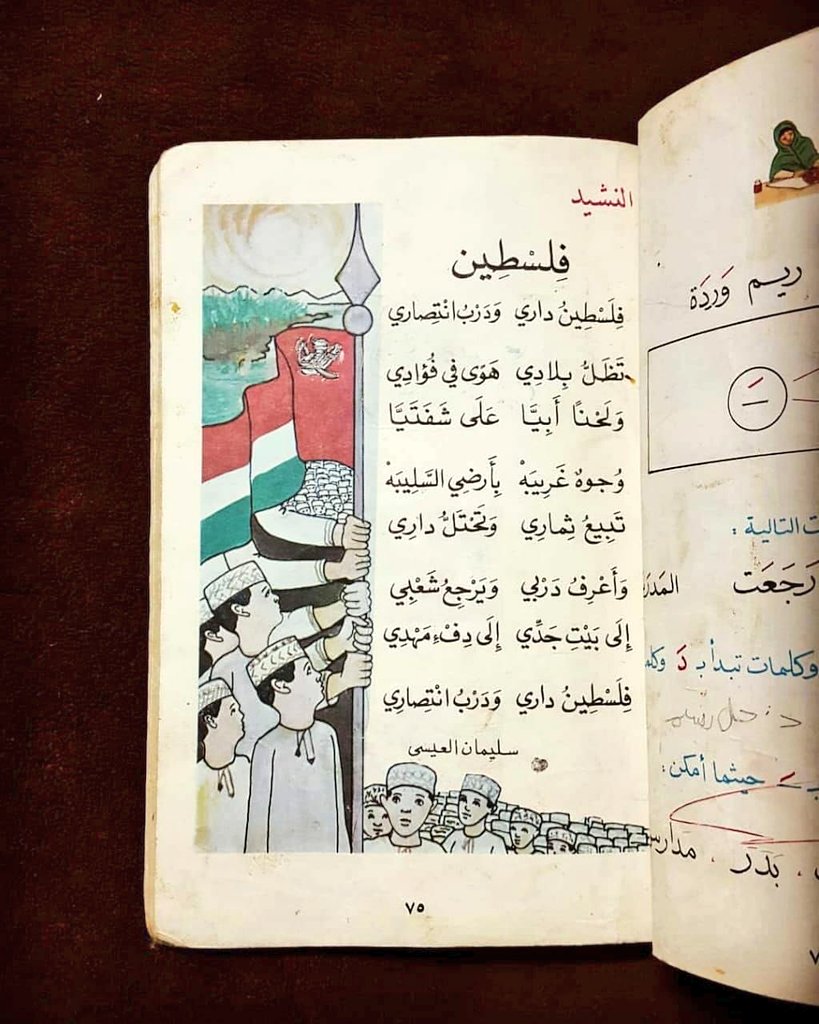 النشيد
فِلِسْطِين
فِلَسْطِينُ داري وَدَرْبُ انْتِصاري
تَظَلُّ بِلادِي هَوًى في فُؤادِي
وَلَحْنًا أَبِيَّا عَلَى شَفَتَيَّا
وُجوهٌ غَرِيبَهْ بِأَرضِي السَّلِيبَهْ
تَبِيعُ ثِمارِي وَتَحْتَلُّ دارِي
وَأَعْرِفُ دَرْبي وَيَرْجِعُ شَعْبِي
إِلَى بَيْتِ جَدِّي إِلَى دِفْءِ مَهْدِي
فِلَسْطِينُ داري وَدَرْبُ انْتِصارِي
سليمان العيسى
٧٥
ريم وَرْدَة
التالية :
رَجَعَت
وكلمات تبدأ بـ دَ
حيثما أمكن :
بَدْر . مدارس